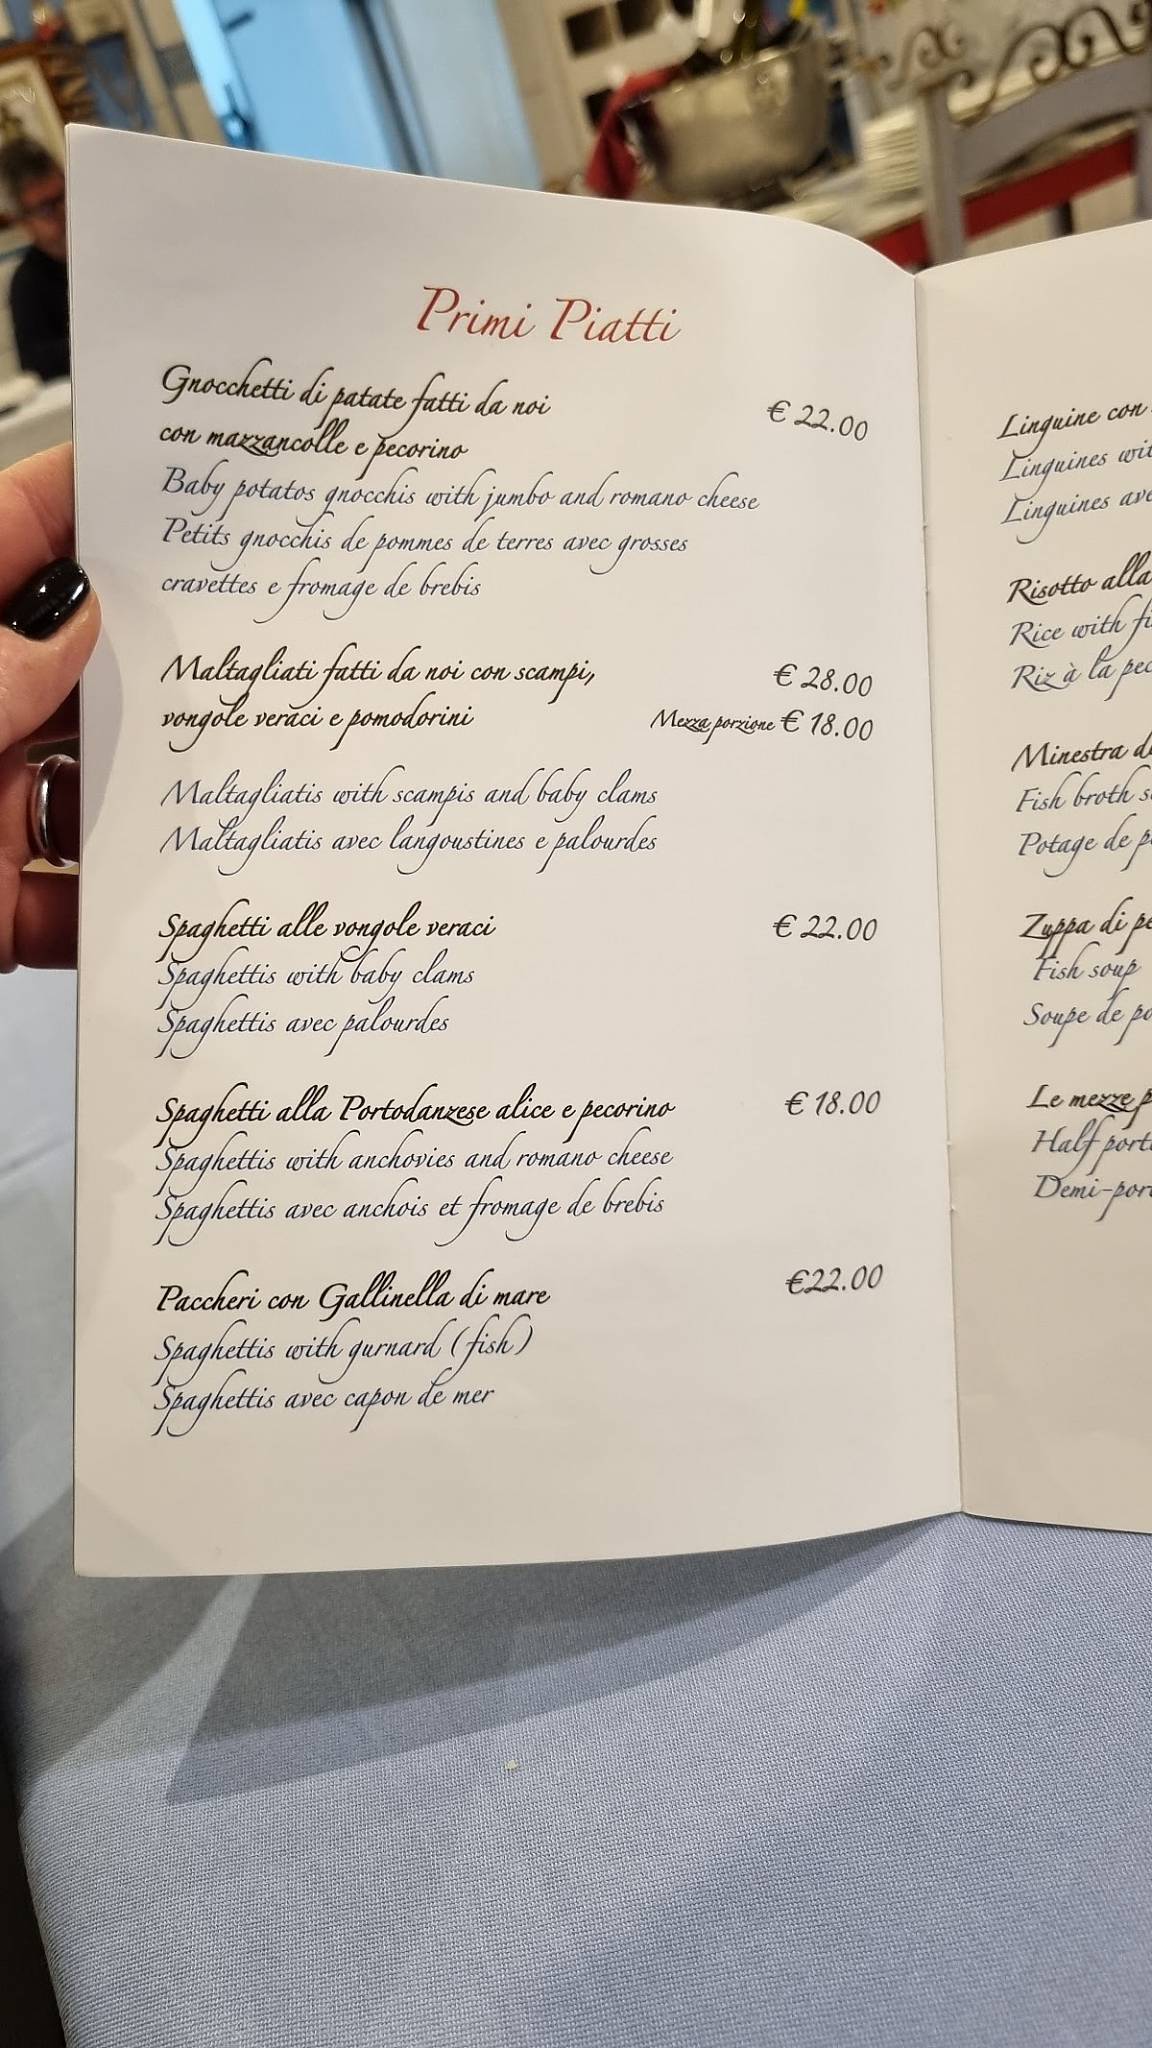 Primi Piatti
Gnocchetti di patate fatti da noi
con mazzancolle e pecorino
€ 22.00
Baby potatos gnocchis with jumbo and romano cheese
Petits gnocchis de pommes de terres avec grosses
cravettes e fromage de brebis
Maltagliati fatti da noi con scampi,
€ 28.00
vongole veraci e pomodorini
Mezza porzione € 18.00
Maltagliatis with scampis and baby clams
Maltagliatis avec langoustines e palourdes
Spaghetti alle vongole veraci
€ 22.00
Spaghettis with baby clams
Spaghettis avec palourdes
Spaghetti alla Portodanzese alice e pecorino
€ 18.00
Spaghettis with anchovies and romano cheese
Spaghettis avec anchois et fromage de brebis
Paccheri con Gallinella di mare
€22.00
Spaghettis with gurnard (fish)
Spaghettis avec capon de mer
Linguine con
Linguines
Linguines
Risotto alla
Rice with
Riz à la
Minestra
Fish broth
Potage de
Zuppa di
Fish soup
Soupe de
Le mezze
Half